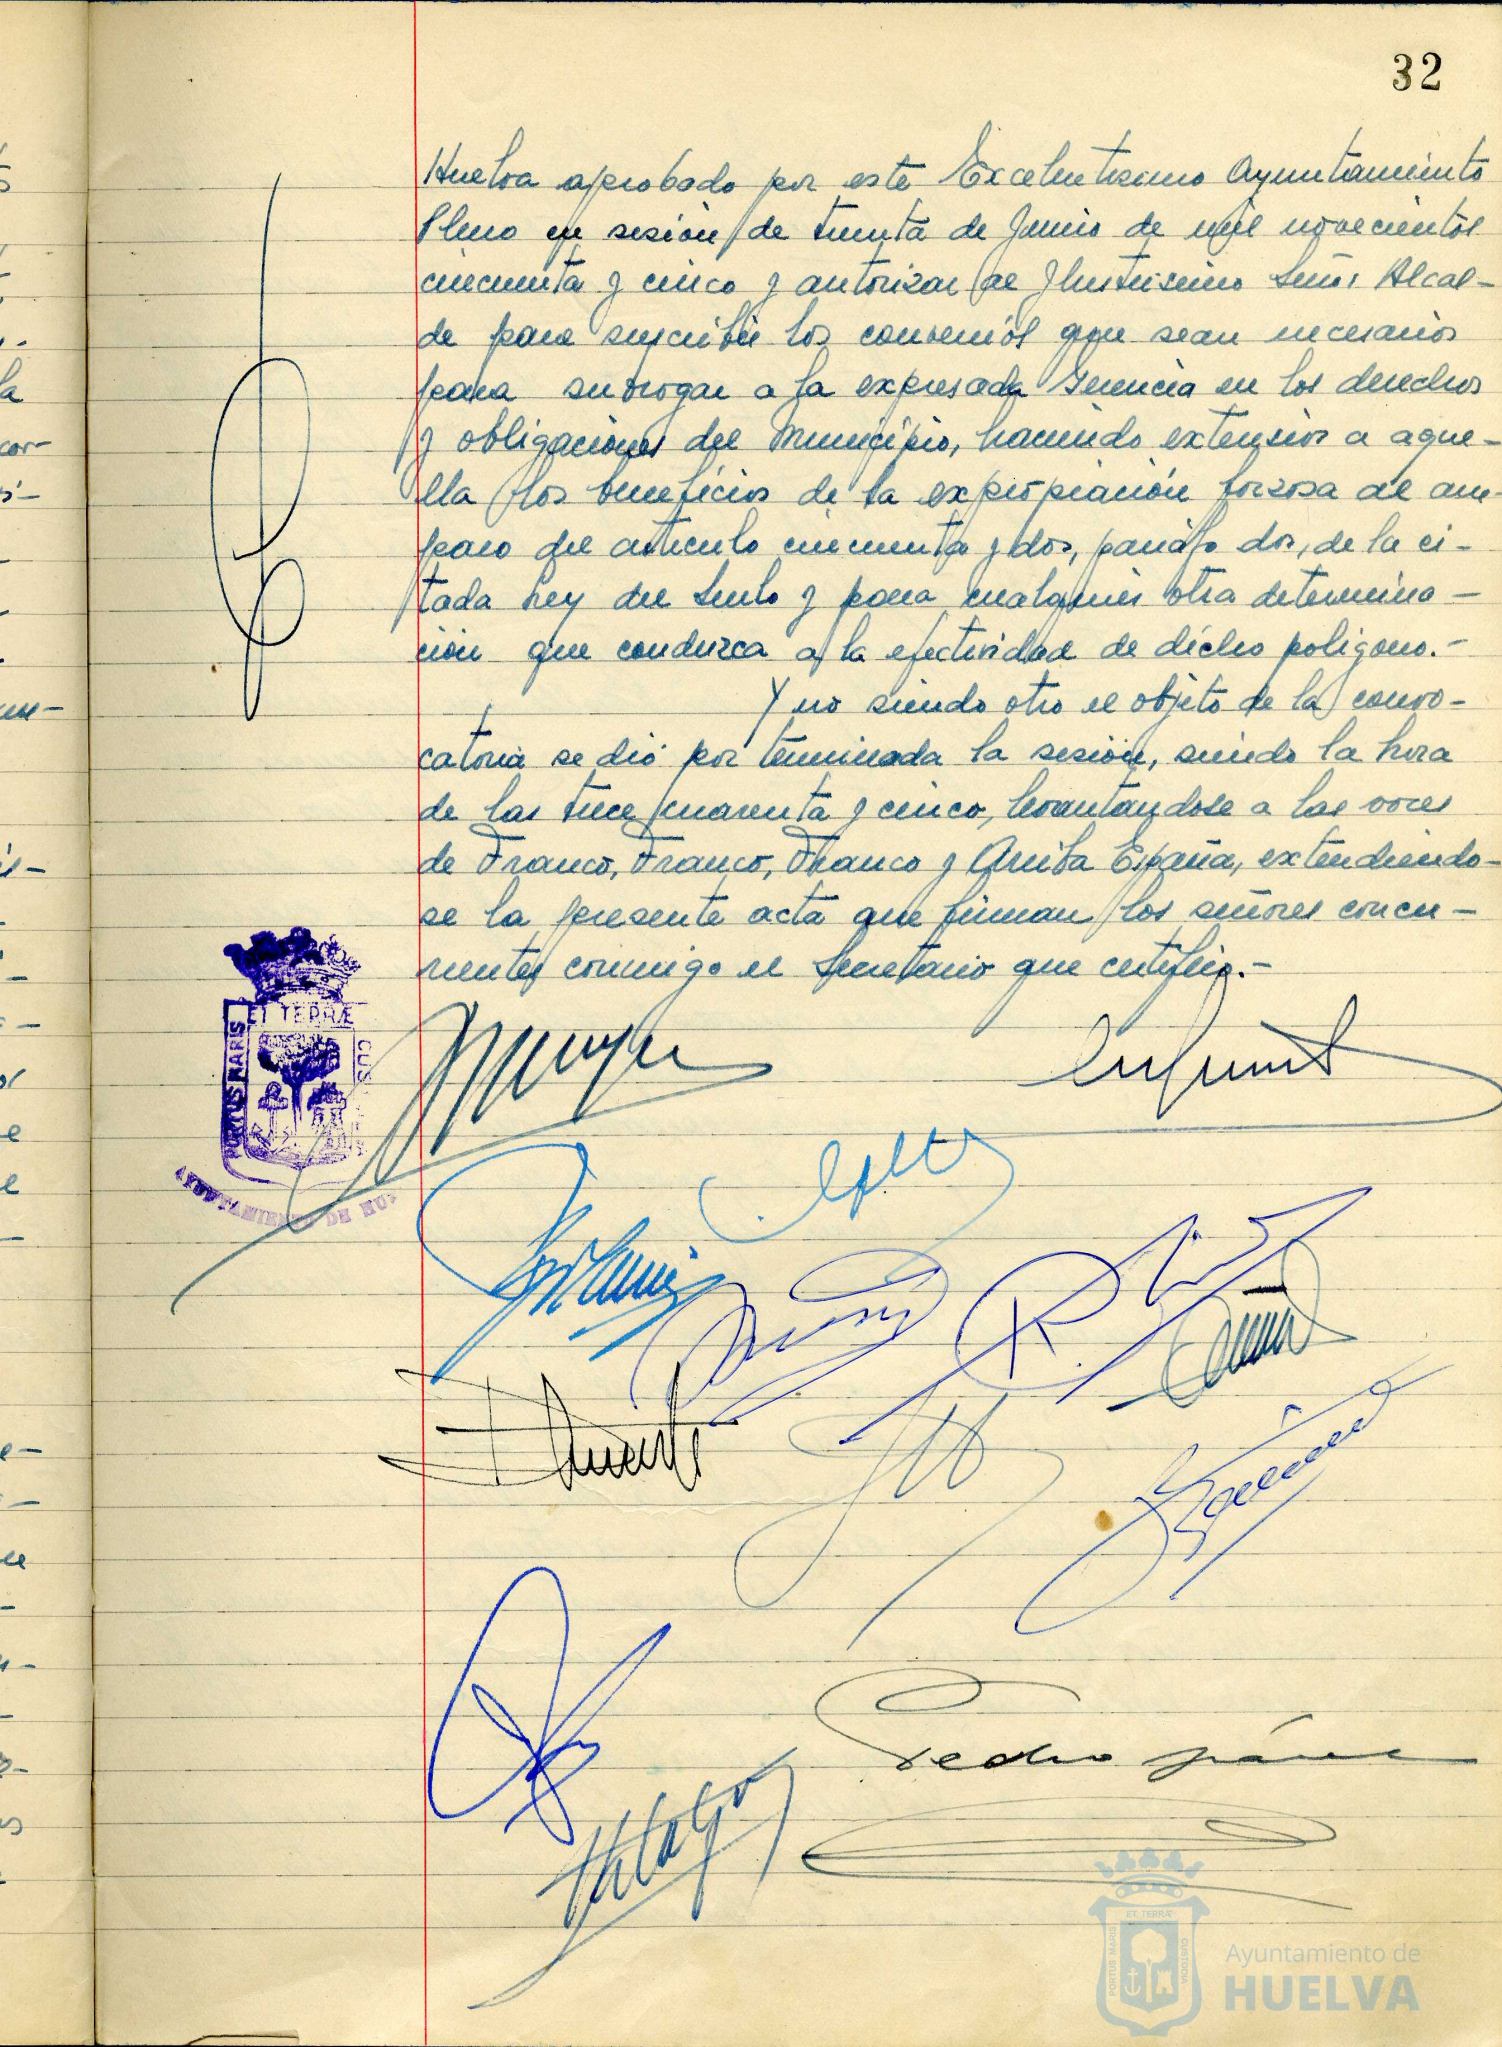 32
Huelva aprobado por este Excelentísimo Ayuntamiento
Pleno en sesión de treinta de Junio de mil novecientos
cincuenta y cinco y autorizar al Ilustrísimo Señor Alcal-
de para suscribir los convenios que sean necesarios
para subrogar a la expresada Gerencia en los derechos
y obligaciones del Municipio, haciendo extensivos a aque-
lla los beneficios de la expropiación forzosa al am-
paro del artículo cincuenta y dos, párrafo dos, de la ci-
tada Ley del Suelo y para cualquier otra determina-
ción que conduzca a la efectividad de dicho polígono.-
Y no siendo otro el objeto de la convo-
catoria se dió por terminada la sesión, siendo la hora
de las trece cuarenta y cinco, levantándose a las voces
de Franco, Franco, Franco y Arriba España, extendiendo-
se la presente acta que firman los señores concu-
rrentes conmigo el Secretario que certifico.-
PORTUS MARIS ET TERRÆ CUS
AYUNTAMIENTO DE HU
Pedro
PORTUS MARIS ET TERRÆ CUSTODIA
Ayuntamiento de
HUELVA